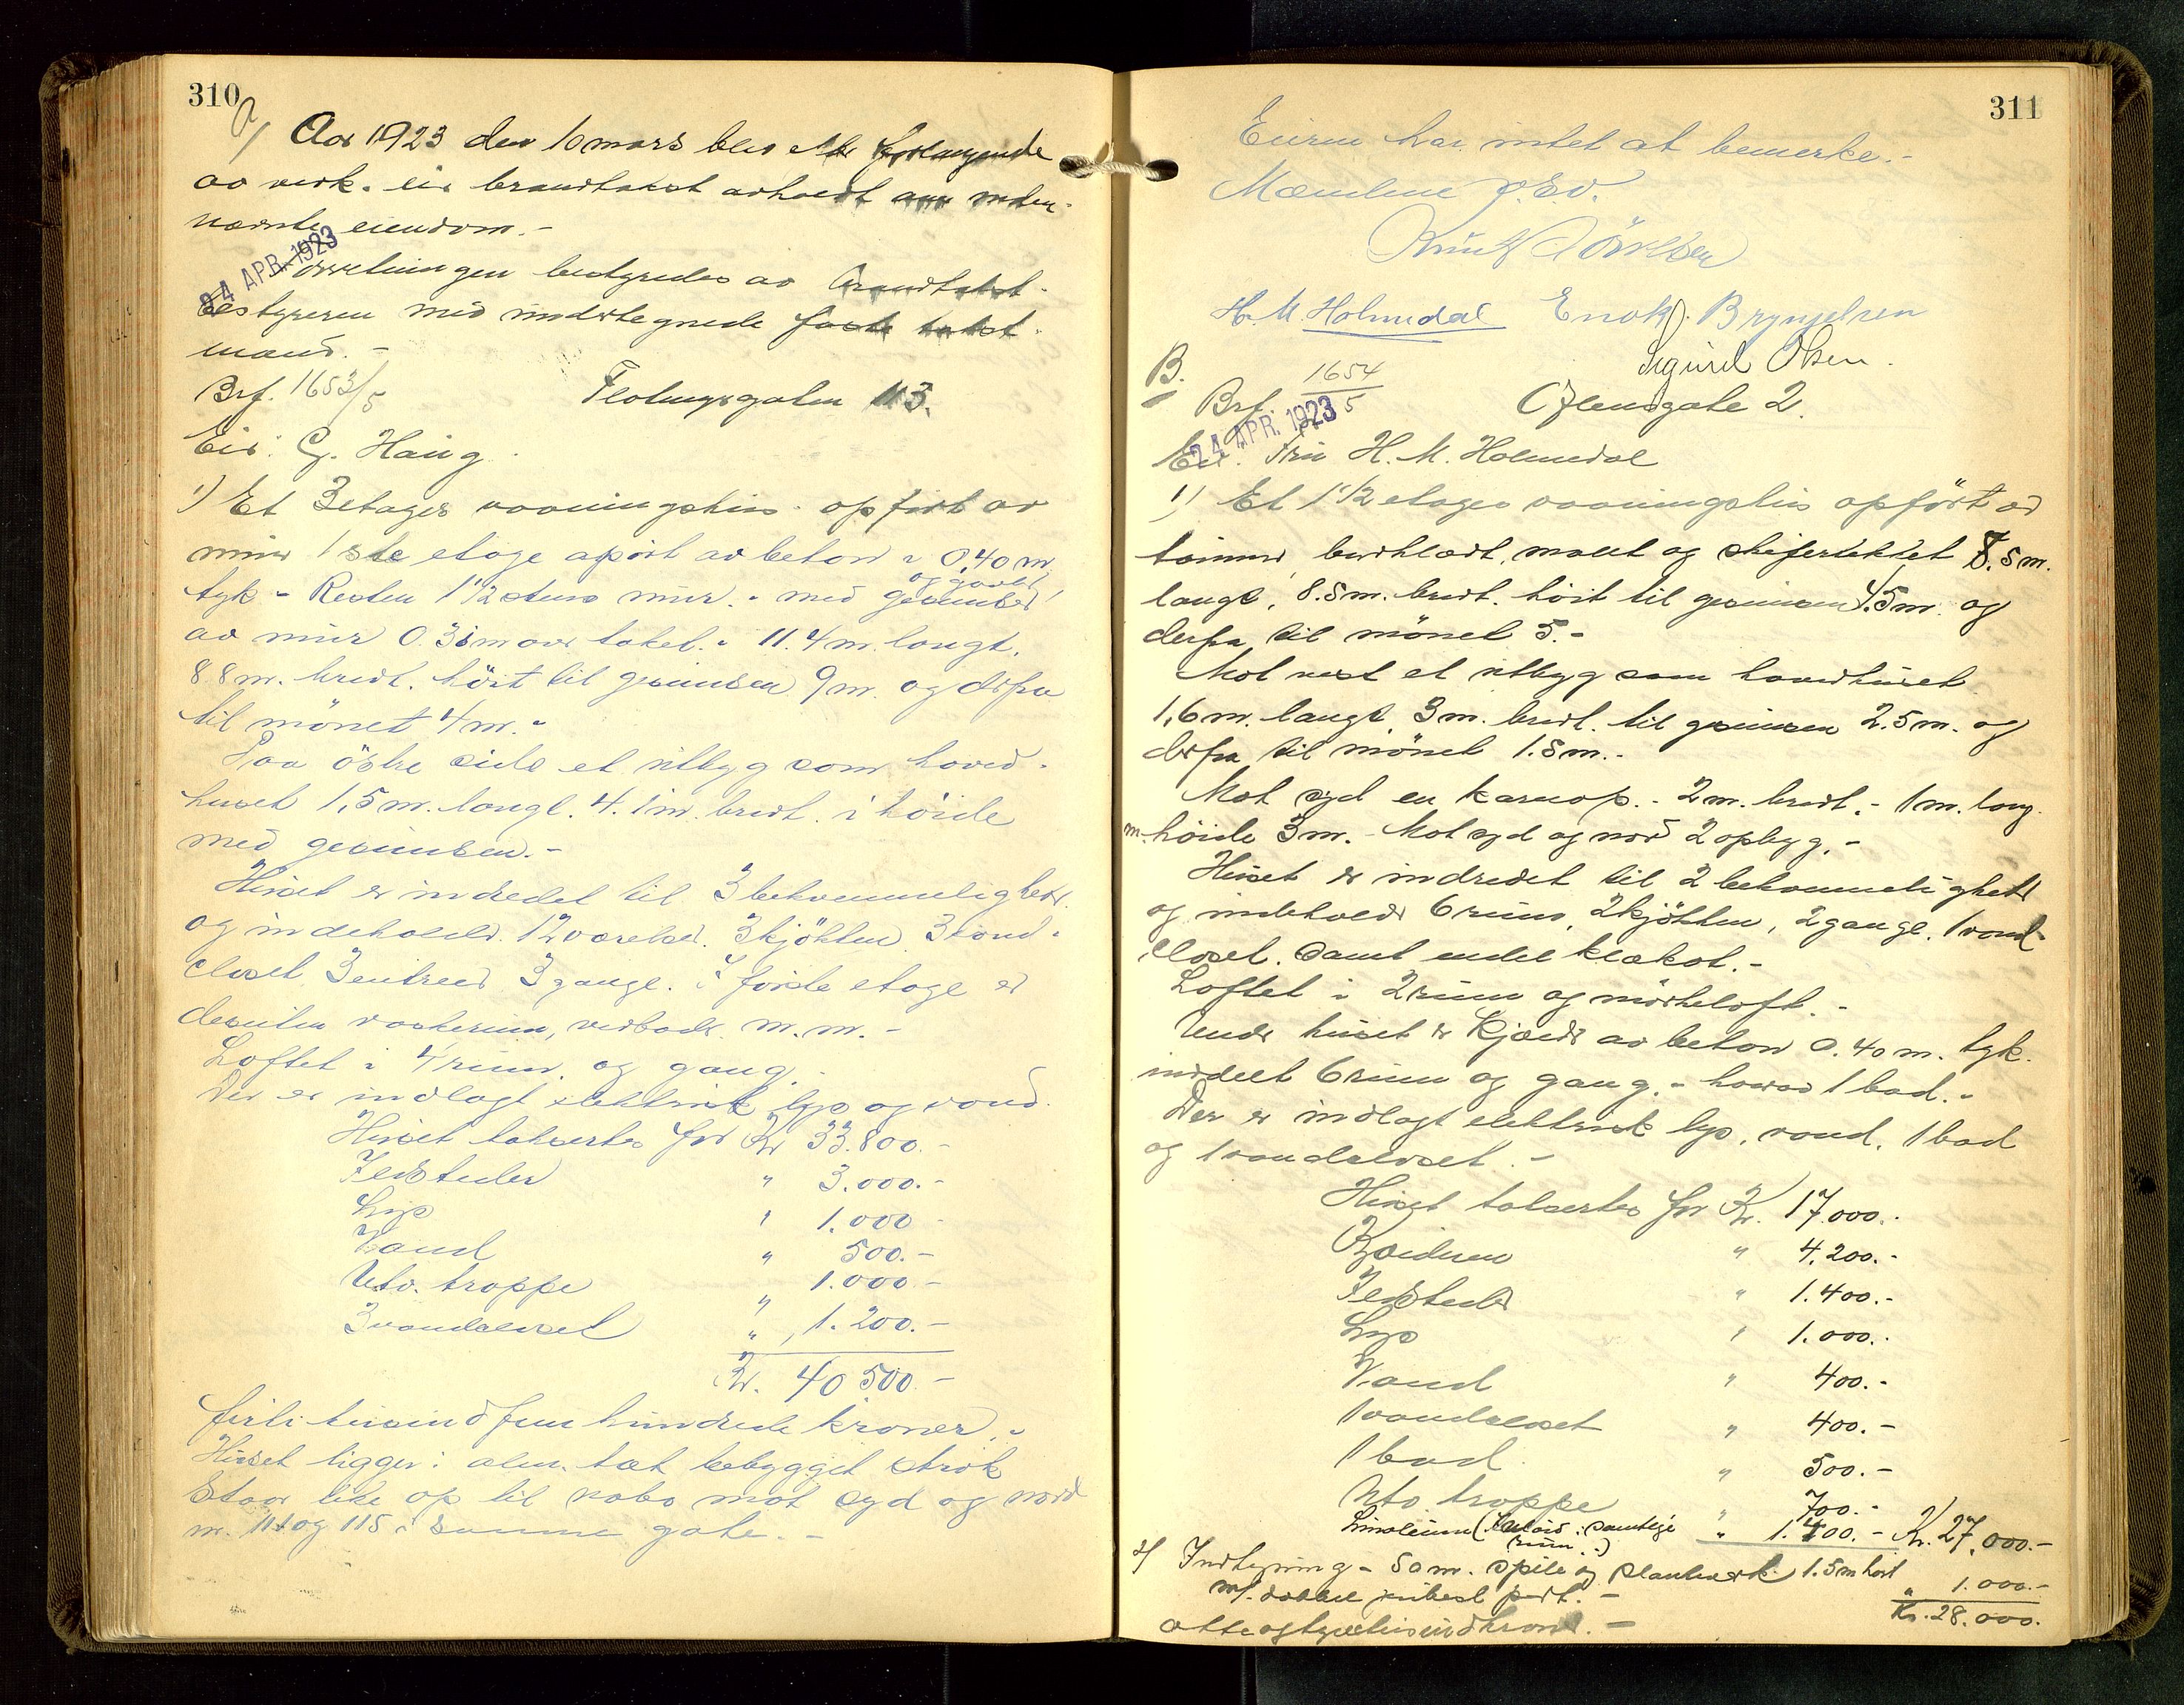 310
A/ Aar 1923 den 10 mars blev efter forlangende
av verk. eier brandtakst avholdt over neden-
nævnte eiendom.-
24 APR. 1923
Forretningen bestyredes av Brandtakst-
bestyreren med undertegnede faste takst-
mænd.-
Brf. 1653/5 Flotmyrgaten 113.
Eier: G. Haug
1) Et 3 etages vaaningshus opført av
mur 1ste etage apørt av beton i 0,40 m.
tyk - Resten 1 1/2 stens mur. - med gesimser
og gavler
av mur 0.35 m over taket. - 11.4 m. langt.
8.8 m. bredt. höit til gesimsen 9 m. og derfra
til mönet 4 m.-
Paa östre side et utbygg som hoved-
huset 1,5 m. langt. 4.1 m. bredt. i höide
med gesimsen.-
Huset er indredet til 3 bekvemmeligheter
og indeholder 12 værelser. 3 kjökken 3 vand-
closet 3 entreer 3 gange. I förste etage er
desuten vaskerum, vedboder m.m.-
Loftet i 4 rum og gang.-
Der er indlagt elektrisk lys og vand.
Huset taksertes for Kr 33.800.-
Ildsteder " 3.000.-
Lys " 1.000.-
Vand " 500.-
Utv. trappe " 1.000.-
3 vandcloset " 1.200.-
Kr. 40 500.-
firti tusind fem hundrede kroner.-
Huset ligger i alm. tæt bebygget strök
Staar like op til nabo mot syd og nord
nr. 111 og 115 i samme gate.-
311
Eieren har intet at bemerke.-
Mæmlene p.e.v.
Knut Törresen
H. M. Holmedal Enok J. Brynjelsen
Sigurd Olsen.
B.
Brf. 1654/5 Olensgate 2.
24 APR. 1923
Eier: Fru H. M. Holmedal
1) Et 1 1/2 etages vaaningshus opfört av
tömmer, bordklædt, malet og skifertækket 8.5 m.
langt, 8.5 m. bredt. höit til gesimsen 4.5 m. og
derfra til mönet 5.-
Mot vest et utbygg som hovedhuset
1,6 m. langt 3 m. bredt. til gesimsen 2.5 m. og
derfra til mönet 1.5 m.-
Mot syd en karnap.- 2 m. bredt.- 1 m. lang
m. höide 3 m.- Mot syd og nord 2 opbygg.-
Huset er indredet til 2 bekvemmeligheter
og indeholder 6 rum, 2 kjökken, 2 gange, 1 vand-
closet. samt endel klækot.-
Loftet i 2 rum og mörkeloft.-
Under huset er kjælder av beton 0.40 m. tyk.
inddelt 6 rum og gang.- hvorav 1 bad.-
Der er indlagt elektrisk lys, vand, 1 bad
og 1 vandcloset.-
Huset taksertes for Kr. 17.000.-
Kjælderen " 4.200.-
Ildsteder " 1.400.-
Lys " 1.000.-
Vand " 400.-
1 vandcloset " 400.-
1 bad " 500.-
Utv. trappe " 700.-
Linoleum ( i samtlige " 1.400.- Kr. 27.000.-
rum.-)
2) Indhegning - 50 m. spile og plankeverk 1.5 m höit
m/. port.- " 1.000.-
Kr. 28.000.
otte og tyve tusind kroner.-